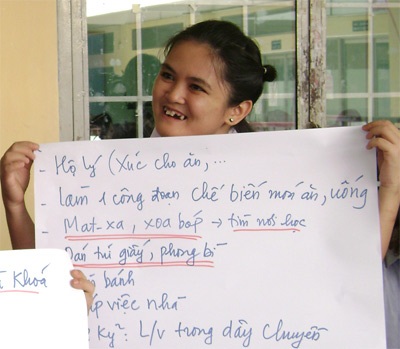 - Hộ lý (Xúc cho ăn, ...
- Làm 1 công đoạn chế biến món ăn, uống
- Mat-xa, xoa bóp → tìm nơi học
Dán túi giấy, phong bì
bánh
việc nhà
Kỹ²: L/v trong dây chuyền
Khoá